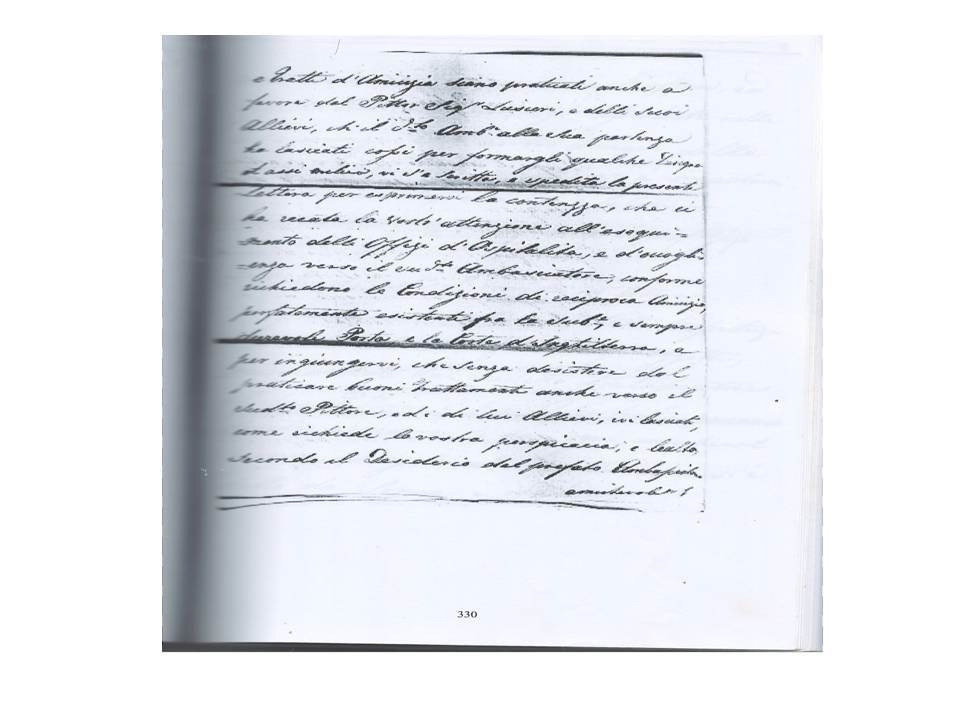 e tratti d'Amicizia siano praticati anche a
favore del Pittor Sig.r Lusieri, e delli suoi
Allievi, ch'il d.to Amb.r alla sua partenza
ha lasciati costì per formargli qualche Disegno
vi s'è scritta, e spedita la presente
lettera per esprimervi la contentezza, che ci
ha recata la vostr'attenzione all'esegui=
=mento delli Offizj d'Ospitalità, e d'accogli=
=enza verso il sud.to Ambasciatore, conforme
richiedono le Condizioni di reciproca Amicizia,
esistenti fra la Sub.e, e sempre
durevole Porta e la Corte d'Inghilterra, e
per ingiungervi, che senza desistere dal
praticare buoni trattamenti anche verso il
sud.to Pittore, ed i di lui Allievi, ivi lasciati,
come richiede la vostra perspicacia, e lealtà,
secondo il Desiderio del prefato
330